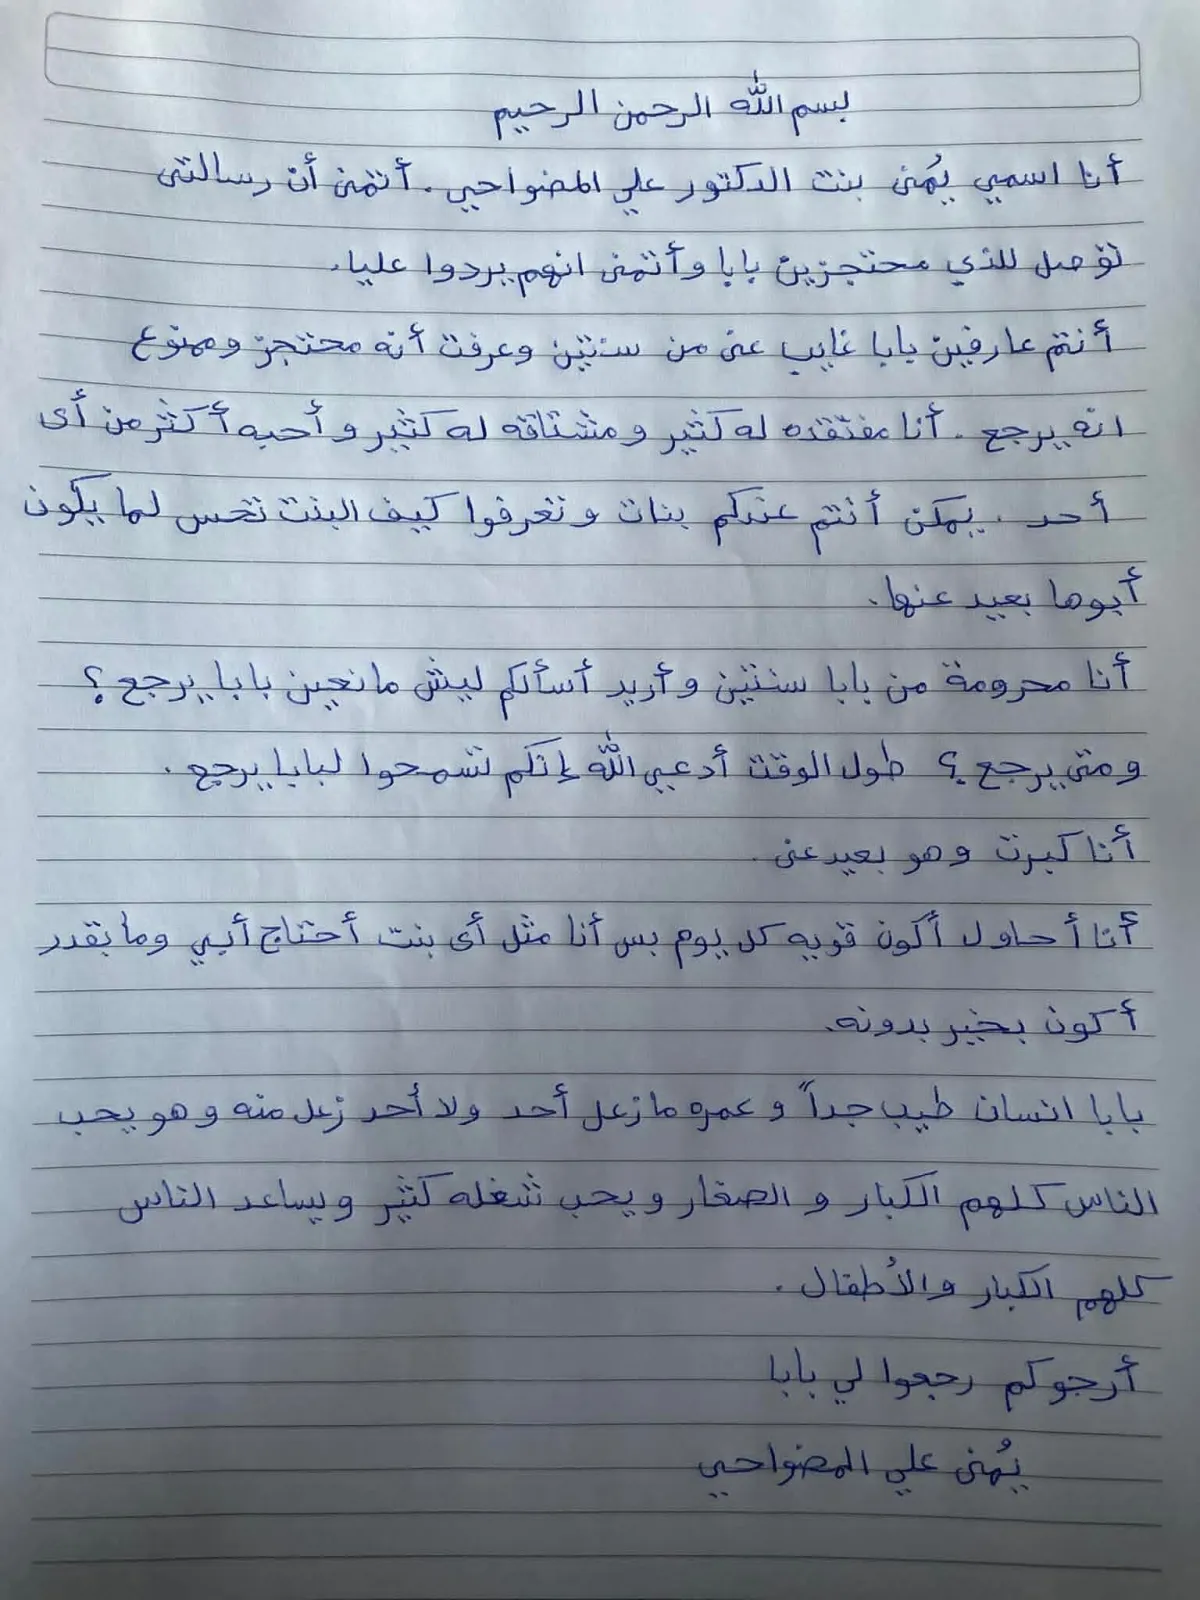 بسم الله الرحمن الرحيم
أنا اسمي يُمنى بنت الدكتور علي المضواحي. أتمنى أن رسالتي
توصل للذي محتجزين بابا وأتمنى انهم يردوا عليا.
أنتم عارفين بابا غايب عني من سنتين وعرفت أنه محتجز وممنوع
انه يرجع. أنا مفتقده له كثير ومشتاقه له كثير وأحبه أكثر من أي
أحد. يمكن أنتم عندكم بنات وتعرفوا كيف البنت تحس لما يكون
أبوها بعيد عنها.
أنا محرومة من بابا سنتين وأريد أسألكم ليش مانعين بابا يرجع؟
ومتى يرجع؟ طول الوقت أدعي الله إنكم تسمحوا لبابا يرجع.
أنا كبرت وهو بعيد عني.
أنا أحاول أكون قويه كل يوم بس أنا مثل أي بنت أحتاج أبي وما بقدر
أكون بخير بدونه.
بابا انسان طيب جداً وعمره ما زعل أحد ولا أحد زعل منه وهو يحب
الناس كلهم الكبار والصغار ويحب شغله كثير ويساعد الناس
كلهم الكبار والأطفال.
أرجوكم رجعوا لي بابا
يُمنى علي المضواحي